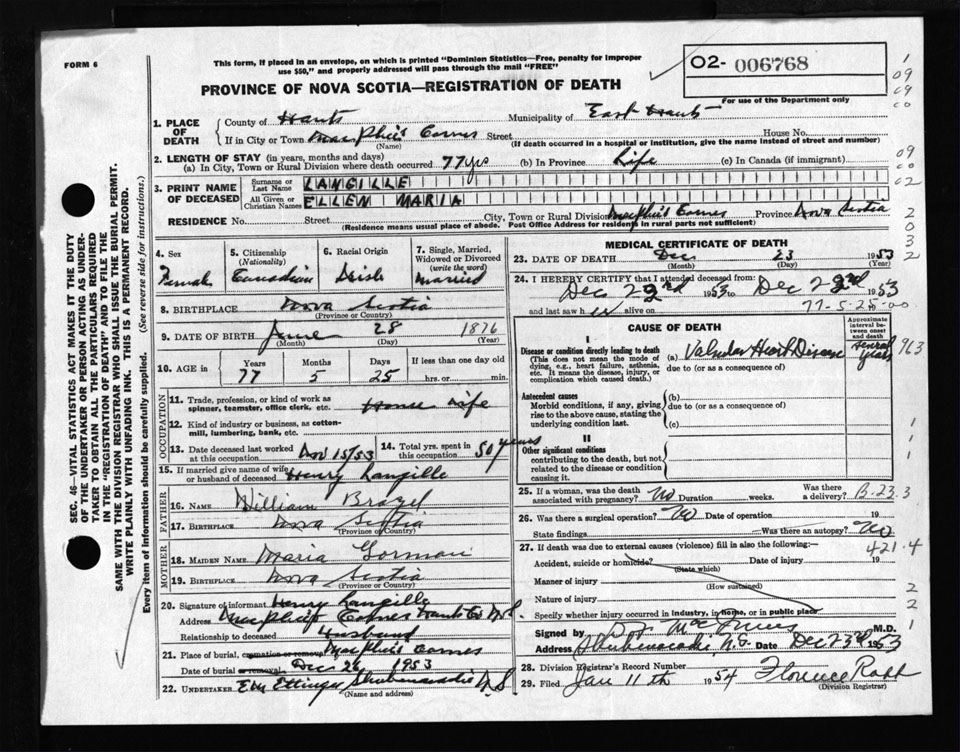 FORM 6
This form, if placed in an envelope, on which is printed "Dominion Statistics—Free, penalty for improper
use $50," and properly addressed will pass through the mail "FREE"
O2- 006768
For use of the Department only
PROVINCE OF NOVA SCOTIA—REGISTRATION OF DEATH
1. PLACE OF DEATH
County of Hants Municipality of East Hants
If in City or Town MacPhee's Corner Street House No.
(Name) (If death occurred in a hospital or institution, give the name instead of street and number)
2. LENGTH OF STAY (in years, months and days)
(a) In City, Town or Rural Division where death occurred 77 yrs (b) In Province Life (c) In Canada (if immigrant)
3. PRINT NAME OF DECEASED
Surname or Last Name LANGILLE
All Given or Christian Names ELLEN MARIA
RESIDENCE No. Street City, Town or Rural Division MacPhee's Corner Province Nova Scotia
(Residence means usual place of abode. Post Office Address for residents in rural parts not sufficient)
4. Sex Female
5. Citizenship (Nationality) Canadian
6. Racial Origin Irish
7. Single, Married, Widowed or Divorced (write the word) Married
8. BIRTHPLACE Nova Scotia
(Province or Country)
9. DATE OF BIRTH June 28 1876
(Month) (Day) (Year)
10. AGE in Years 77 Months 5 Days 25 If less than one day old hrs. or min.
OCCUPATION
11. Trade, profession, or kind of work as spinner, teamster, office clerk, etc. House Wife
12. Kind of industry or business, as cotton-mill, lumbering, bank, etc.
13. Date deceased last worked at this occupation Nov 15/53
14. Total yrs. spent in this occupation 50 years
15. If married give name of wife or husband of deceased Henry Langille
FATHER
16. NAME William Brazel
17. BIRTHPLACE Nova Scotia
(Province or Country)
MOTHER
18. MAIDEN NAME Maria Gorman
19. BIRTHPLACE Nova Scotia
(Province or Country)
20. Signature of informant Henry Langille
Address Corner Hants Co N.S.
Relationship to deceased Husband
21. Place of burial, cremation or removal MacPhee's Corner
Date of burial or removal Dec 26 1953
22. UNDERTAKER Ettinger Shubenacadie N.S.
(Name and address)
MEDICAL CERTIFICATE OF DEATH
23. DATE OF DEATH Dec 23 1953
(Month) (Day) (Year)
24. I HEREBY CERTIFY that I attended deceased from:
Dec 22nd 1953 Dec 22nd 1953
and last saw her alive on
77-5-25-00
CAUSE OF DEATH
Approximate interval between onset and death
I
Disease or condition directly leading to death
(This does not mean the mode of dying, e.g., heart failure, asthenia, etc. It means the disease, injury, or complication which caused death.)
(a) Valvular Heart Disease Several years
due to (or as a consequence of)
Antecedent causes
Morbid conditions, if any, giving rise to the above cause, stating the underlying condition last.
(b)
due to (or as a consequence of)
(c)
II
Other significant conditions
contributing to the death, but not related to the disease or condition causing it.
25. If a woman, was the death associated with pregnancy? No Duration weeks. Was there a delivery? B-23
26. Was there a surgical operation? No Date of operation 19
State findings Was there an autopsy? No
27. If death was due to external causes (violence) fill in also the following:— 421.4
Accident, suicide or homicide? Date of injury 19
(State which)
Manner of injury
(How sustained)
Nature of injury
Specify whether injury occurred in industry, in home, or in public place
Signed by M.D.
Address Shubenacadie N.S. Date Dec 23rd 1953
28. Division Registrar's Record Number
29. Filed Jan 11th 1954 Florence
(Division Registrar)
SEC. 46—VITAL STATISTICS ACT MAKES IT THE DUTY
OF THE UNDERTAKER OR PERSON ACTING AS UNDER-
TAKER TO OBTAIN ALL THE PARTICULARS REQUIRED
IN THE "REGISTRATION OF DEATH" AND TO FILE THE
SAME WITH THE DIVISION REGISTRAR WHO SHALL ISSUE THE BURIAL PERMIT.
WRITE PLAINLY WITH UNFADING INK. THIS IS A PERMANENT RECORD.
Every item of information should be carefully supplied. (See reverse side for instructions.)
1
09
09
00
09
00
02
2
0
3
2
963
1
1
3
1
2
2
1